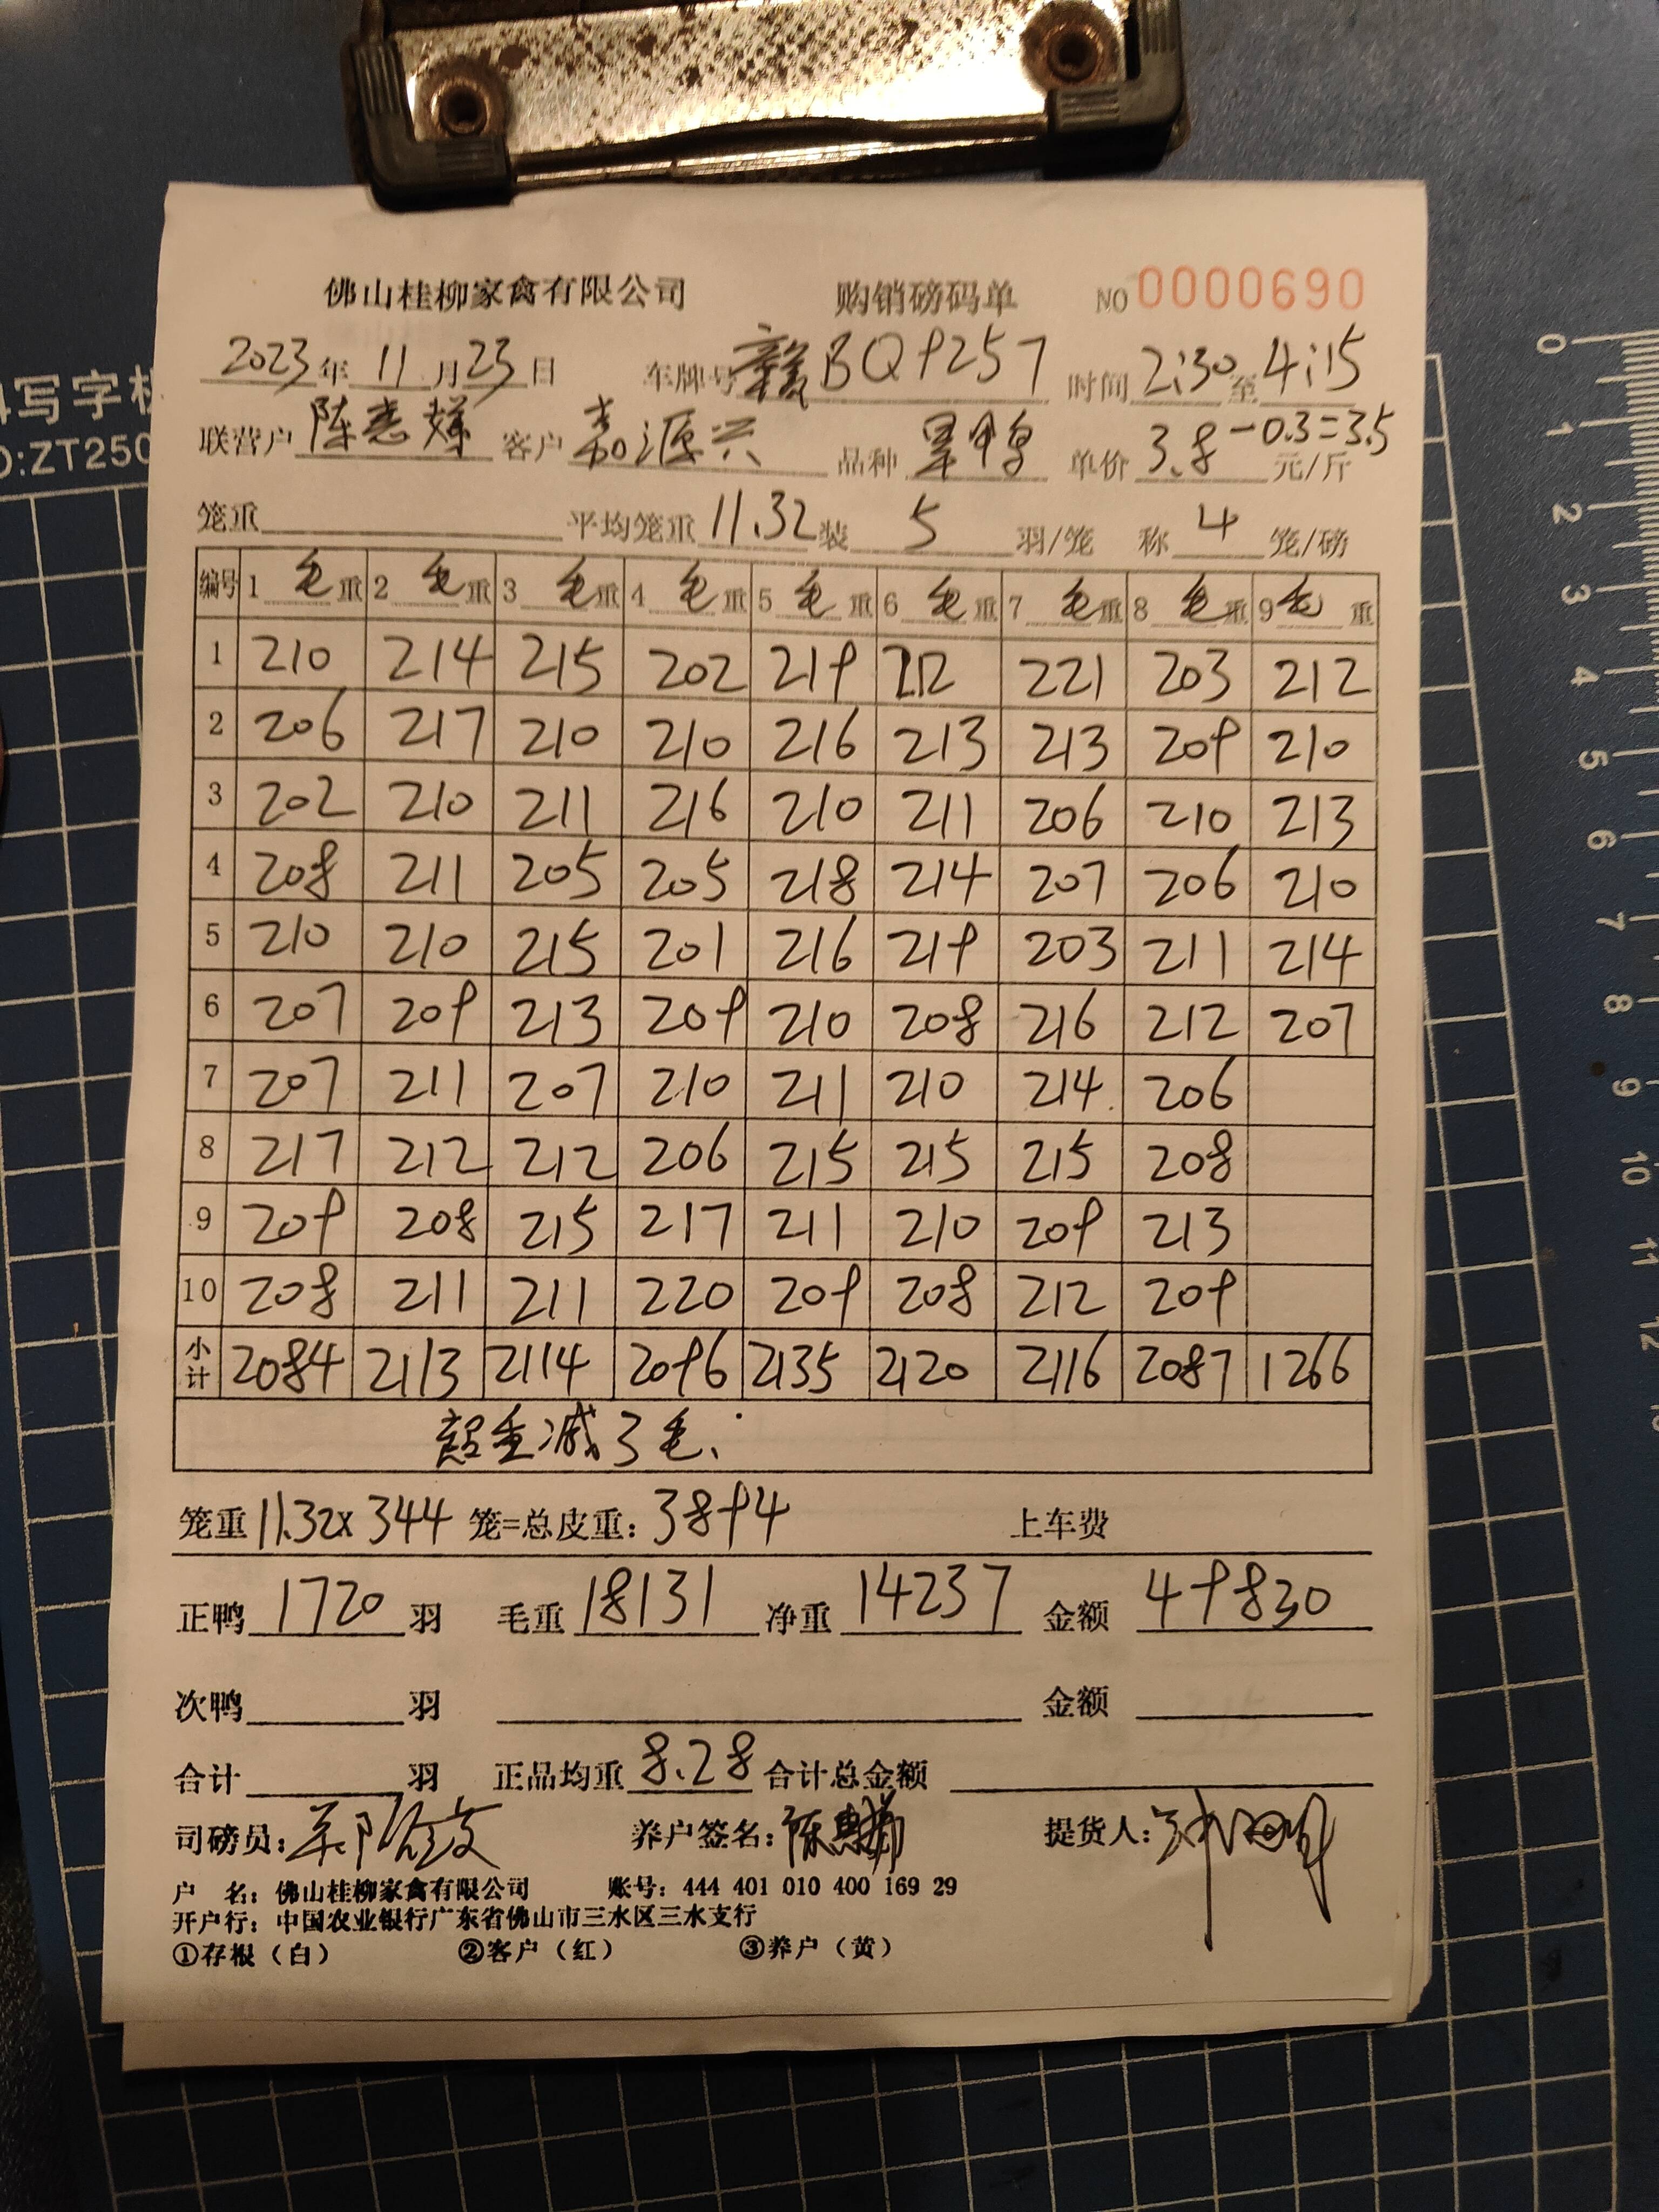 佛山桂柳家禽有限公司 购销磅码单 NO 0000690
2023年 11月23日 车牌号 赣BQ9257 时间 2:30 至 4:15
联营户 陈惠 客户 嘉源兴 品种 单价 3.8-0.3=3.5 元/斤
笼重 平均笼重 11.32 装 5 羽/笼 称 4 笼/磅
编号 1 毛重 2 毛重 3 毛重 4 毛重 5 毛重 6 毛重 7 毛重 8 毛重 9 毛重
1 210 214 215 202 219 212 221 203 212
2 206 217 210 210 216 213 213 209 210
3 202 210 211 216 210 211 206 210 213
4 208 211 205 205 218 214 207 206 210
5 210 210 215 201 216 219 203 211 214
6 207 209 213 209 210 208 216 212 207
7 207 211 207 210 211 210 214 206
8 217 212 212 206 215 215 215 208
9 209 208 215 217 211 210 209 213
10 208 211 211 220 209 208 212 209
小计 2084 2113 2114 2096 2135 2120 2116 2087 1266
超重减了毛.
笼重 11.32x 344 笼=总皮重: 3894 上车费
正鸭 1720 羽 毛重 18131 净重 14237 金额 49830
次鸭 羽 金额
合计 羽 正品均重 8.28 合计总金额
司磅员: 养户签名: 陈 提货人:
户 名: 佛山桂柳家禽有限公司 账号: 444 401 010 400 169 29
开户行: 中国农业银行广东省佛山市三水区三水支行
①存根（白） ②客户（红） ③养户（黄）
写字板
D:ZT250
0
1
2
3
4
5
6
7
8
9
10
11
12
13